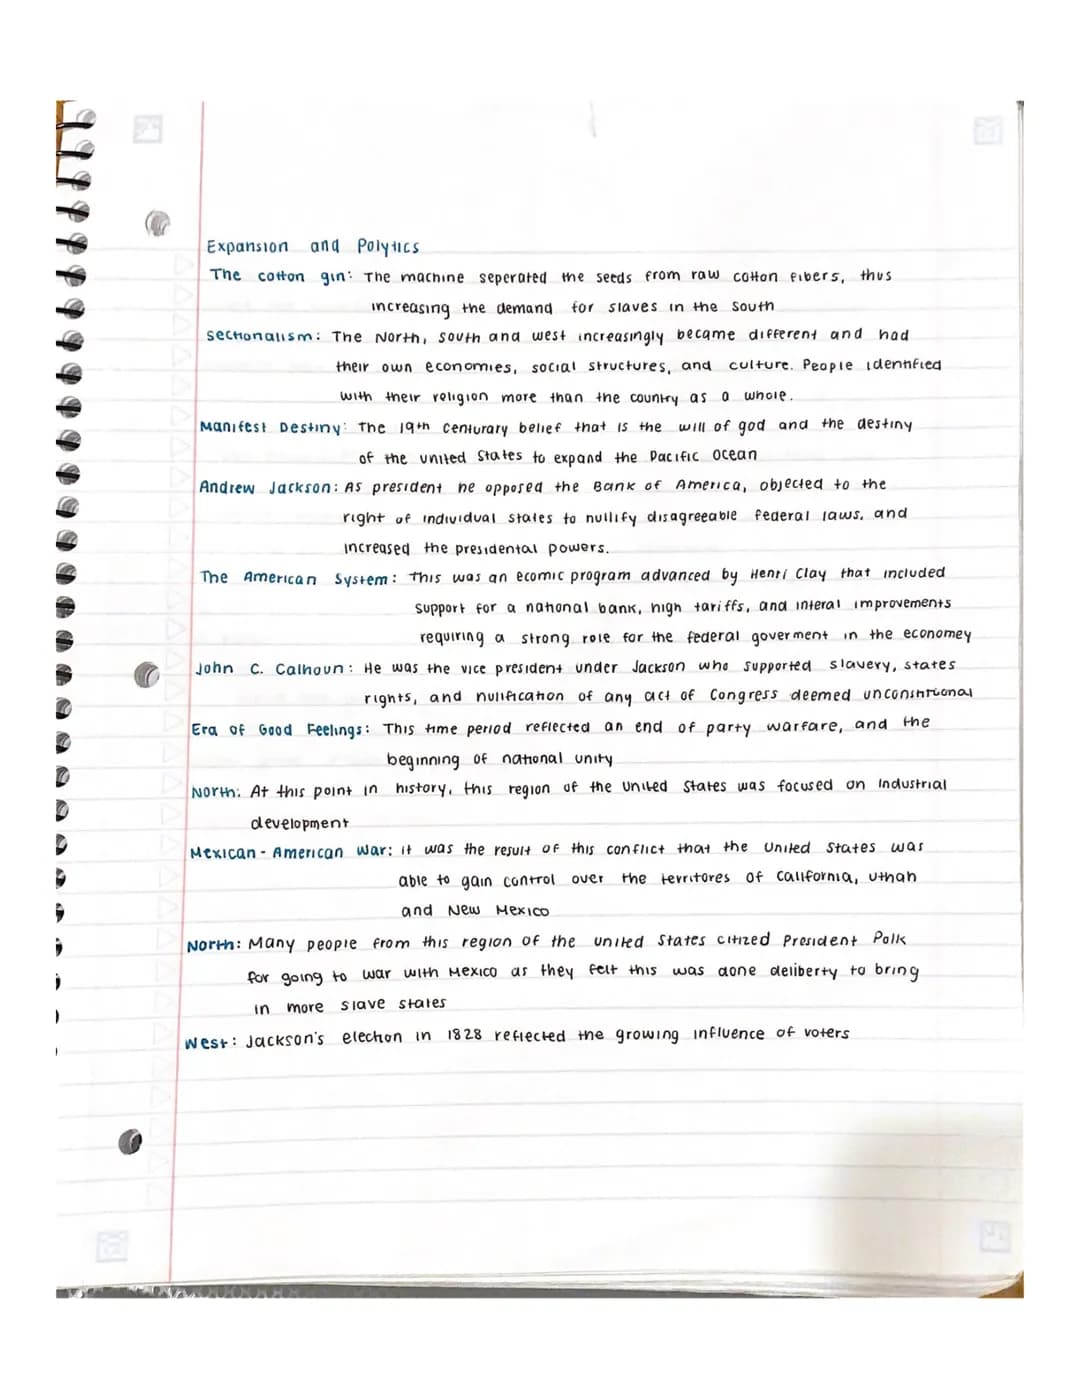 Expansion and Polytics
The cotton gin: The machine seperated the seeds from raw cotton fibers, thus
increasing the demand for slaves in the South
Sectionalism: The North, South and west increasingly became different and had
their own economies, social structures, and culture. People identified
with their religion more than the country as a whole.
Manifest Destiny: The 19th Centurary belief that is the will of god and the destiny
of the United States to expand the Pacific Ocean
Andrew Jackson: As president he opposed the Bank of America, objected to the
right of individual states to nullify disagreeable federal laws, and
increased the presidental powers.
The American System: This was an ecomic program advanced by Henri Clay that included
support for a national bank, high tariffs, and interal improvements
requiring a strong role for the federal goverment in the economey
John C. Calhoun: He was the vice president under Jackson who supported slavery, states
rights, and nulification of any act of Congress deemed unconstitutional
Era of Good Feelings: This time period reflected an end of party warfare, and the
beginning of national unity
North: At this point in history, this region of the United States was focused on Industrial
development
Mexican-American War: it was the result of this conflict that the United States was
able to gain control over the territores of California, uthah
and New Mexico
North: Many people from this region of the united States citized President Polk
for going to war with Mexico as they felt this was done deliberty to bring
in more slave states
West: Jackson's election in 1828 reflected the growing influence of voters